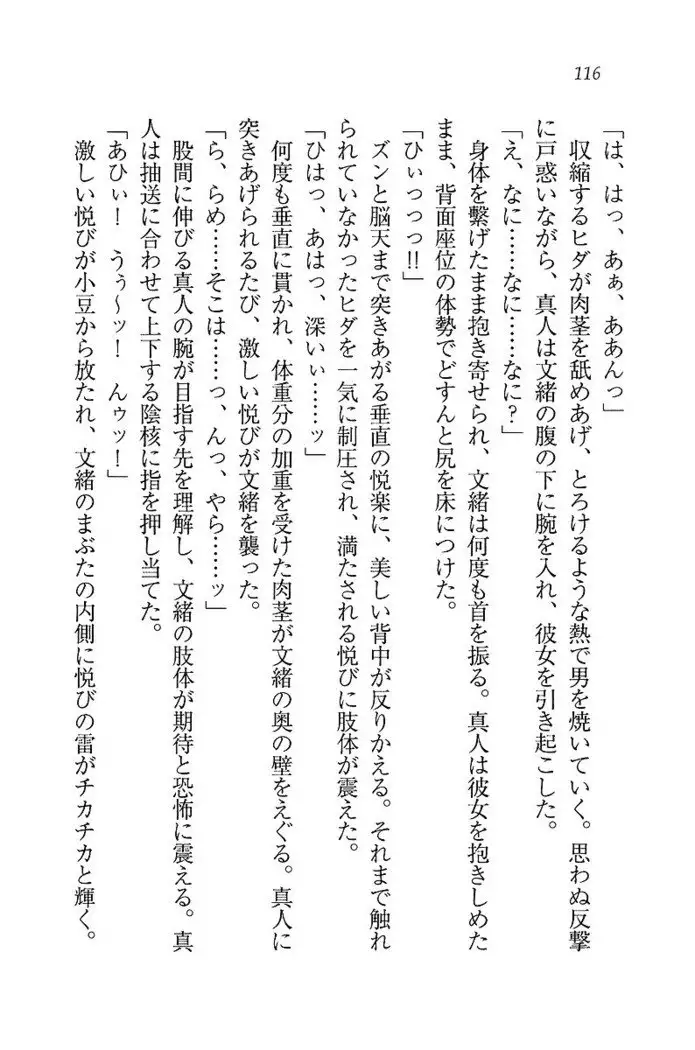 116
「は、はっ、あぁ、ああんっ」
収縮するヒダが肉茎を舐めあげ、とろけるような熱で男を焼いていく。思わぬ反撃
に戸惑いながら、真人は文緒の腹の下に腕を入れ、彼女を引き起こした。
「え、なに……なに……なに？」
身体を繋げたまま抱き寄せられ、文緒は何度も首を振る。真人は彼女を抱きしめた
まま、背面座位の体勢でどすんと尻を床につけた。
「ひぃっっっ‼」
ズンと脳天まで突きあがる垂直の悦楽に、美しい背中が反りかえる。それまで触れ
られていなかったヒダを一気に制圧され、満たされる悦びに肢体が震えた。
「ひはっ、あはっ、深いぃ……ッ」
何度も垂直に貫かれ、体重分の加重を受けた肉茎が文緒の奥の壁をえぐる。真人に
突きあげられるたび、激しい悦びが文緒を襲った。
「ら、らめ……そこは……っ、んっ、やら……ッ」
股間に伸びる真人の腕が目指す先を理解し、文緒の肢体が期待と恐怖に震える。真
人は抽送に合わせて上下する陰核に指を押し当てた。
「あひぃ！　うぅ～ッ！　んゥッ！」
激しい悦びが小豆から放たれ、文緒のまぶたの内側に悦びの雷がチカチカと輝く。